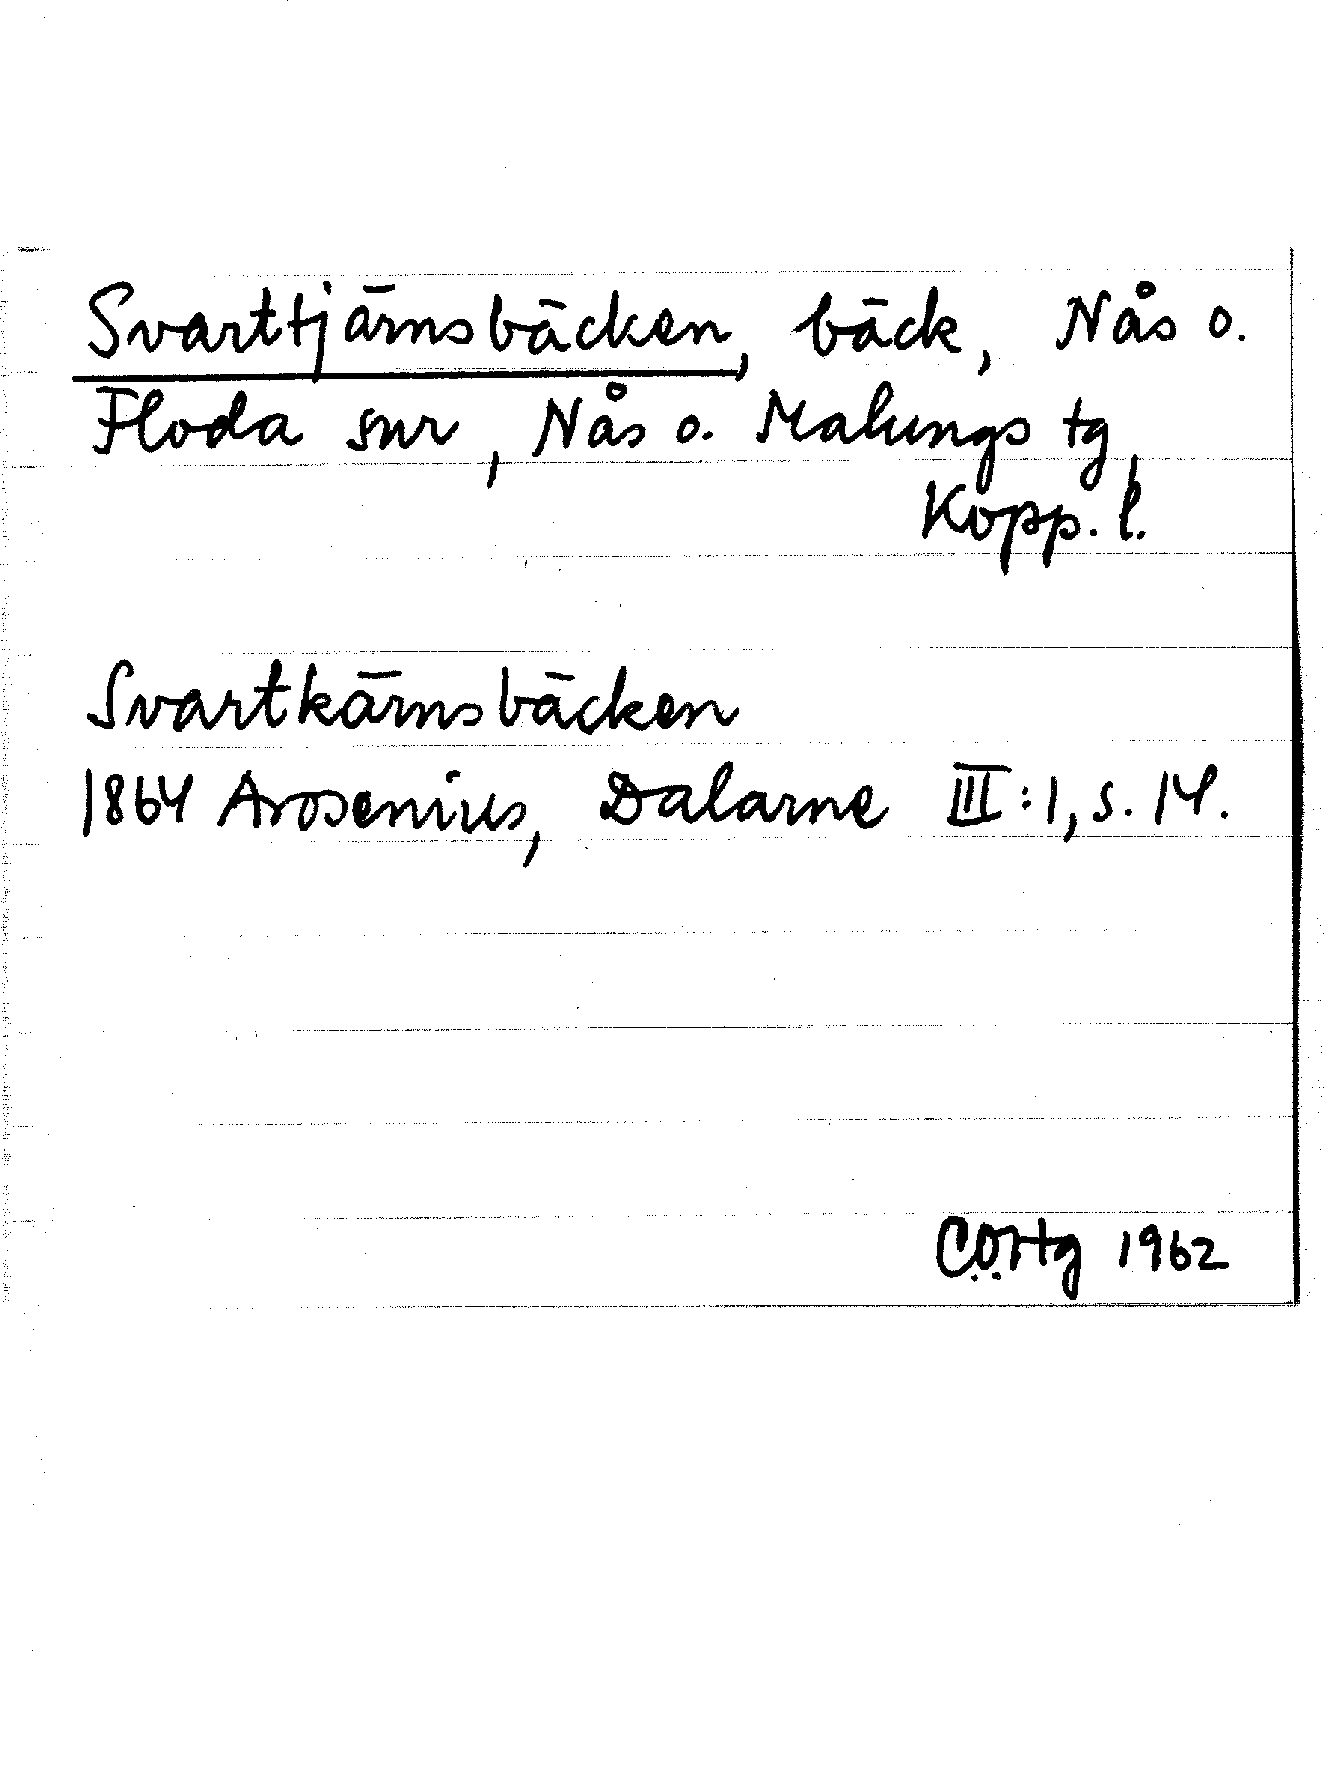 Svarttjärnsbäcken, bäck, Nås o.
Floda snr, Nås o. Malungs tg,
Kopp. l.
Svartkärnsbäcken
1864 Arosenius, Dalarne III:1, s. 14.
1962